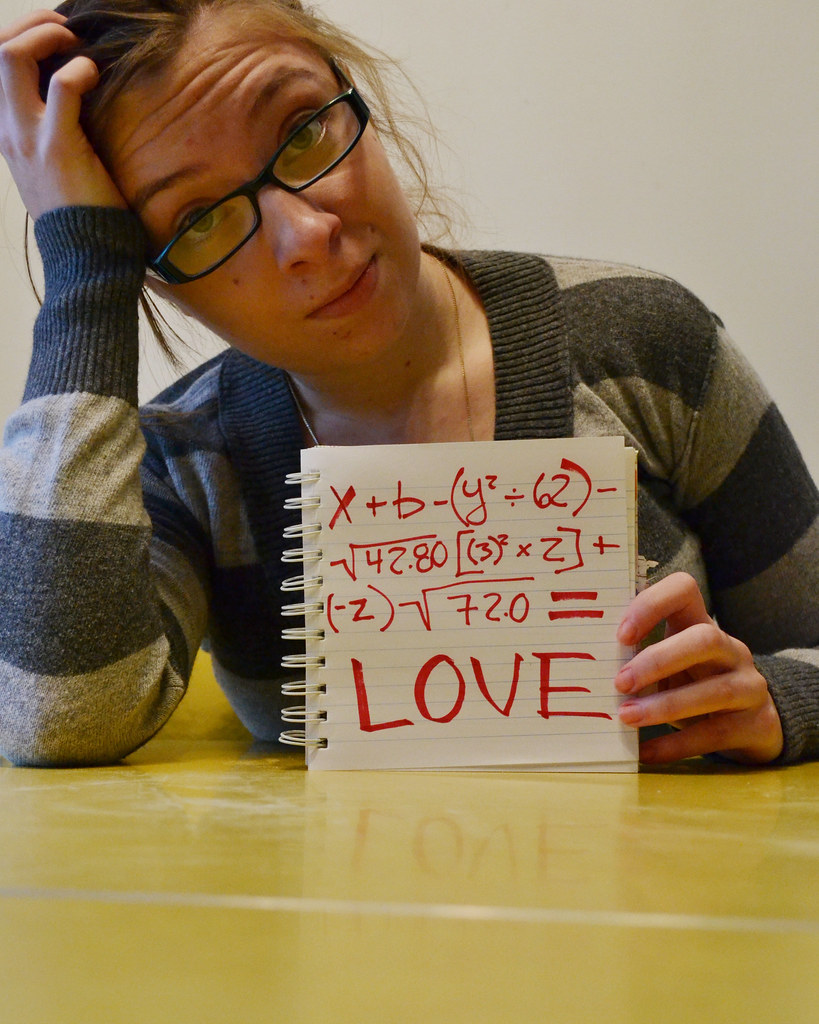 x + b - (y² ÷ 62) -
√42.80 [(3)² × z] +
(-z) - √72.0 =
LOVE